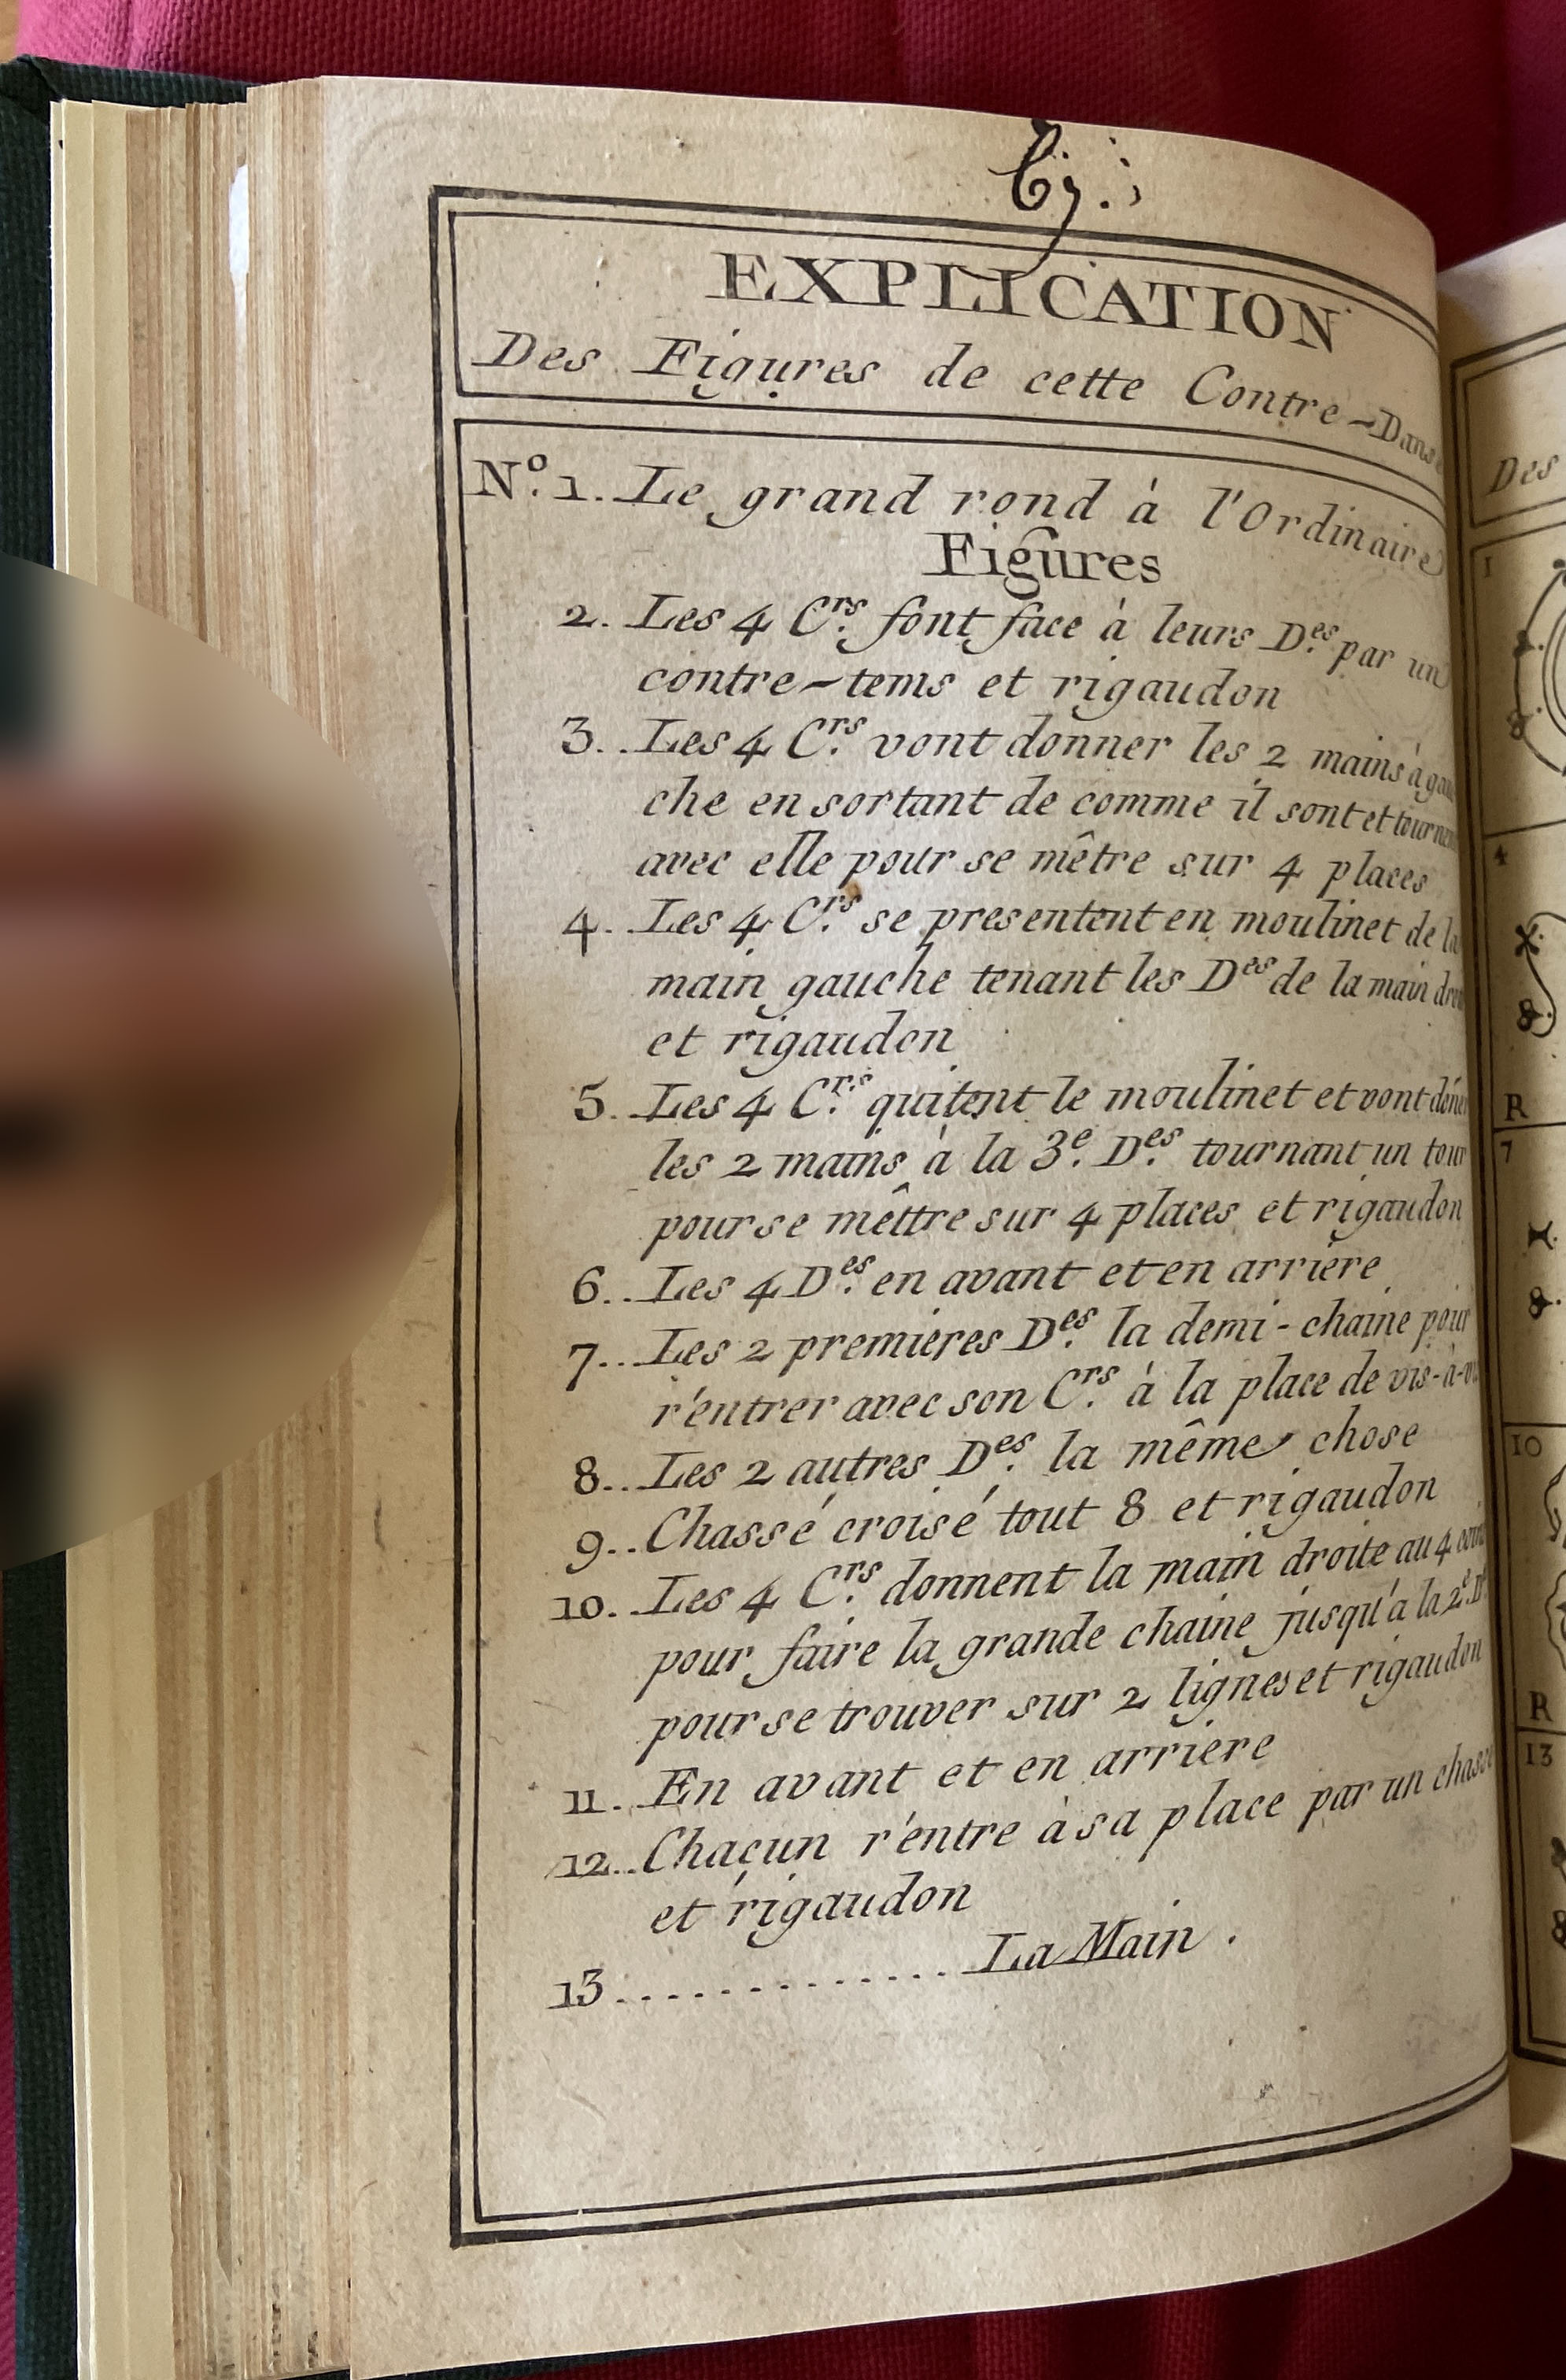 EXPLICATION
Des Figures de cette Contre-Danse
N.º 1. Le grand rond à l'Ordinaire
Figures
2. Les 4 C.rs font face à leurs D.es par un
contre-tems et rigaudon
3. Les 4 C.rs vont donner les 2 mains à gau
che en sortant de comme il sont et tournent
avec elle pour se mêtre sur 4 places
4. Les 4 C.rs se presentent en moulinet de la
main gauche tenant les D.es de la main
et rigaudon
5. Les 4 C.rs quitent le moulinet et vont
les 2 mains à la 3.e D.es tournant un tour
pour se mêttre sur 4 places et rigaudon
6. Les 4 D.es en avant et en arriere
7. Les 2 premieres D.es la demi-chaine pour
r'entrer avec son C.rs à la place de vis-à-
8. Les 2 autres D.es la même chose
9. Chassé croisé tout 8 et rigaudon
10. Les 4 C.rs donnent la main droite au 4
pour faire la grande chaine jusqu'à la 2.e
pour se trouver sur 2 lignes et rigaudon
11. En avant et en arriere
12. Chacun r'entre à sa place par un
et rigaudon
13 ............. La Main.
Des
1
4
R
7
10
R
13